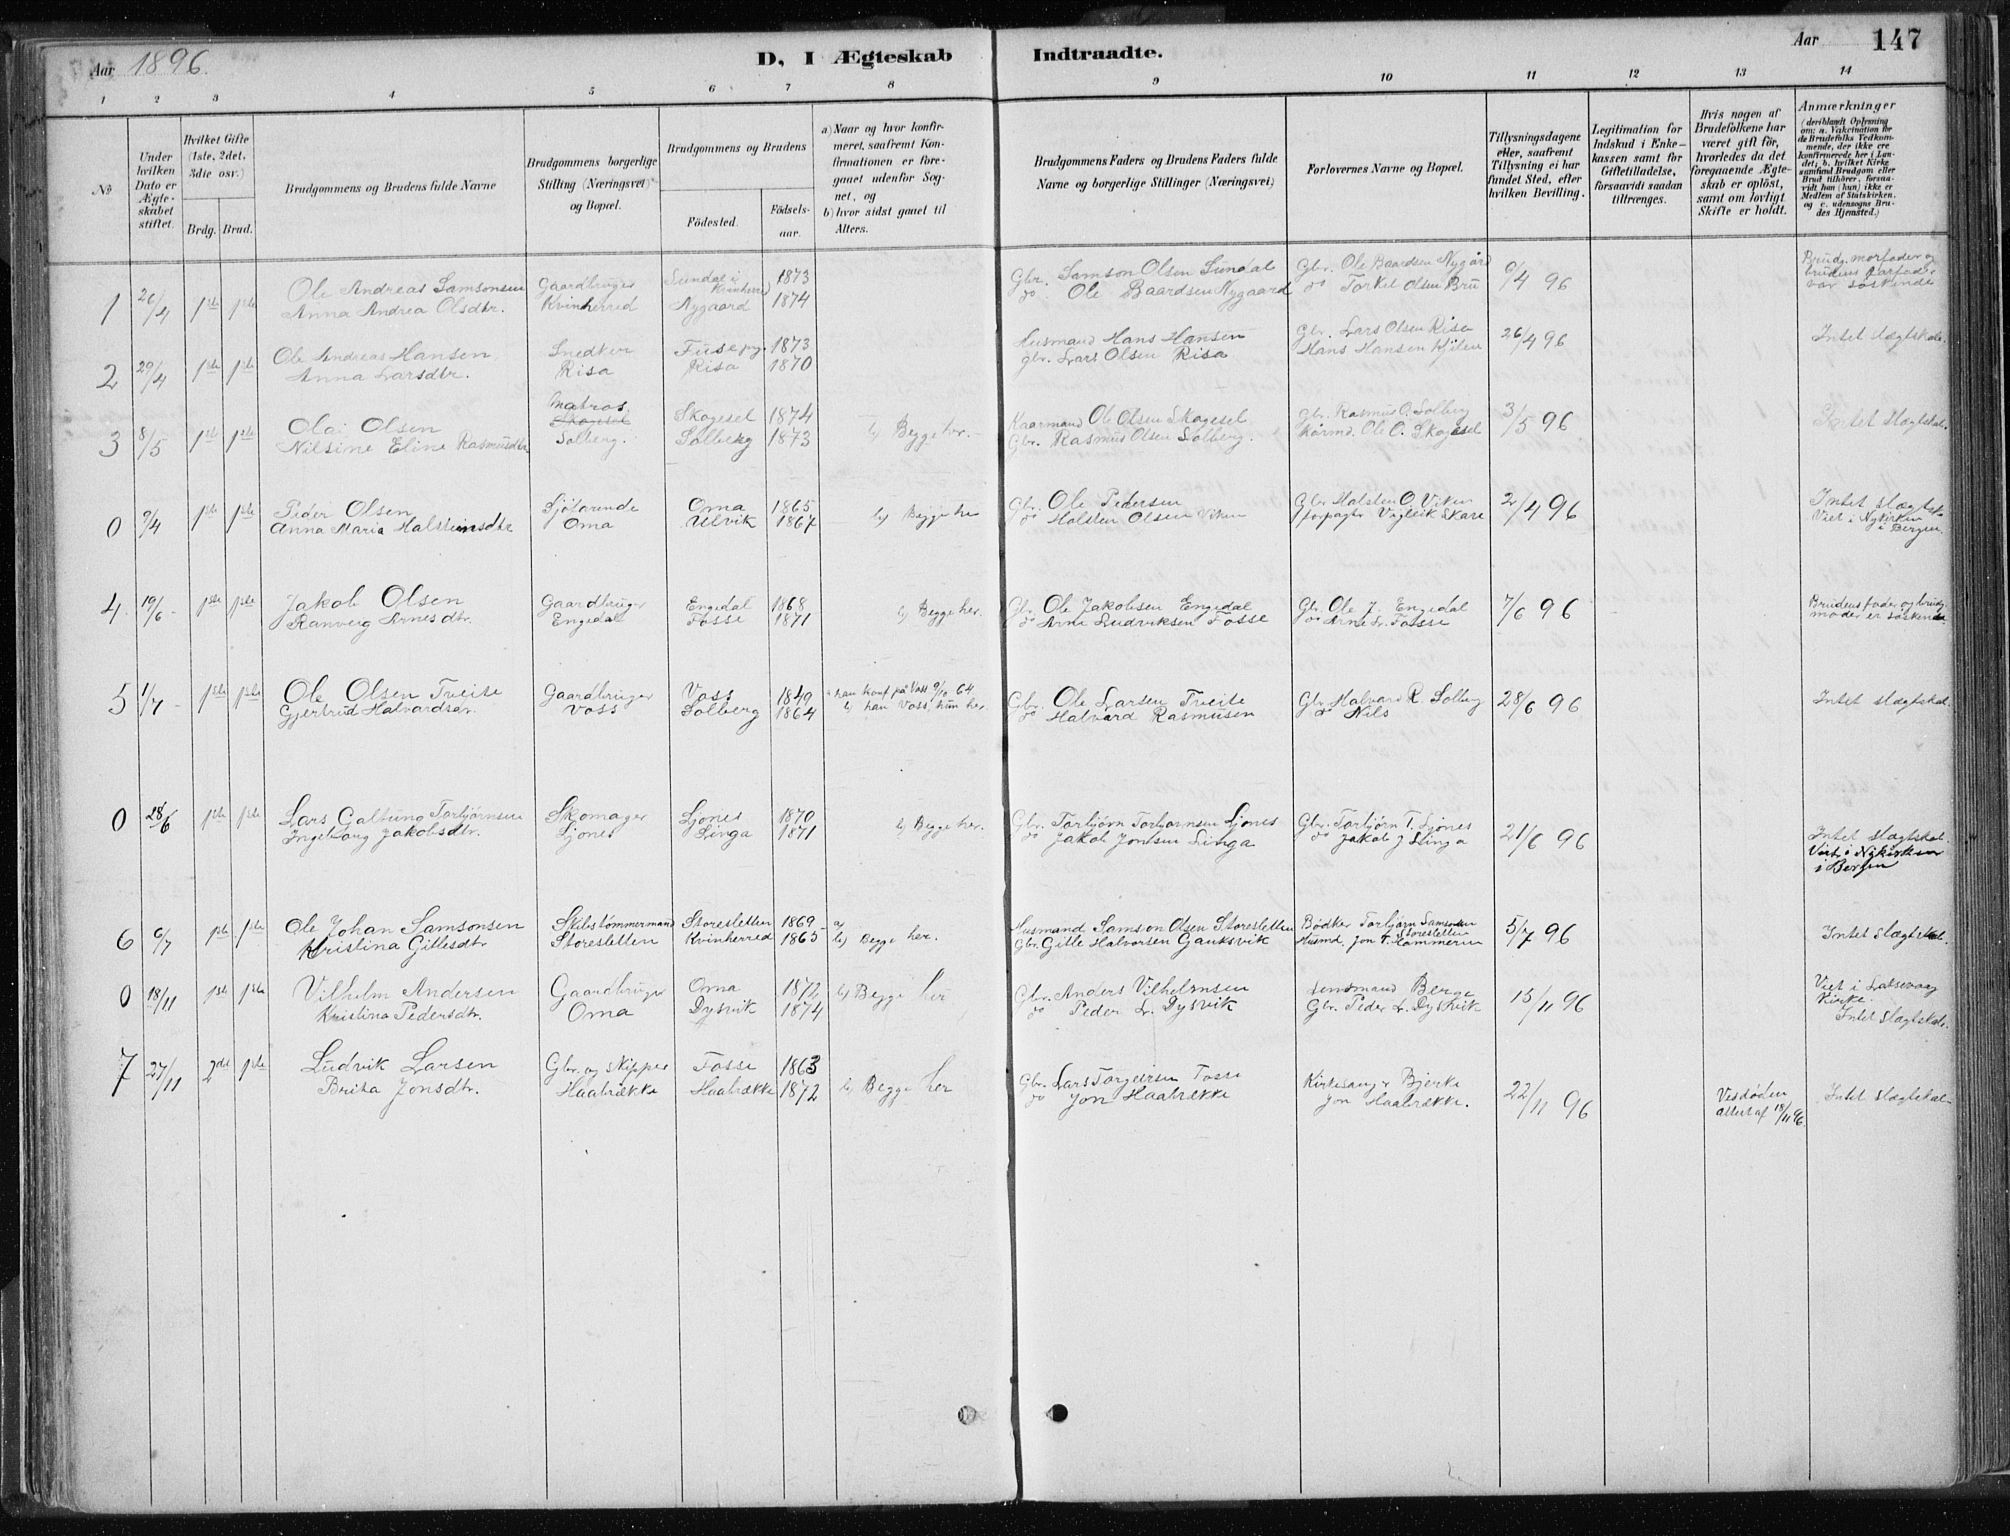 Aar 1896.
D, I Ægteskab Indtraadte.
Aar 147
1 2 3 4 5 6 7 8 9 10 11 12 13 14
No
Under hvilken Dato er Ægteskabet stiftet.
Hvilket Gifte (1ste, 2det, 3die osv.)
Brdg. Brud.
Brudgommens og Brudens fulde Navne
Brudgommens borgerlige Stilling (Næringsvei) og Bopæl.
Brudgommens og Brudens
Fødested.
Fødselsaar.
a) Naar og hvor konfirmeret, saafremt Konfirmationen er foregaaet udenfor Sognet, og
b) hvor sidst gaaet til Alters.
Brudgommens Faders og Brudens Faders fulde Navne og borgerlige Stillinger (Næringsvei)
Forlovernes Navne og Bopæl.
Tillysningsdagene eller, saafremt Tillysning ei har fundet Sted, efter hvilken Bevilling.
Legitimation for Indskud i Enkekassen samt for Giftetilladelse, forsaavidt saadan tiltrænges.
Hvis nogen af Brudefolkene har været gift før, hvorledes da det foregaaende Ægteskab er opløst, samt om lovligt Skifte er holdt.
Anmærkninger (deriblandt Oplysning om: a. Vakcination for de Brudefolks Vedkommende, der ikke ere konfirmerede her i Landet; b. hvilket Kirkesamfund Brudgom eller Brud tilhører, forsaavidt han (hun) ikke er Medlem af Statskirken, og c. udensogns Brudes Hjemsted.)
1 26/4 1ste 1ste Ole Andreas Samsonsen Gaardbruger Sundal i Kvinherred 1873 Gbr. Samson Olsen Sundal Gbr. Ole Baardsen Nygård 6/4 96 Brudg. morfader og
Anna Andrea Olsdtr. Kvinherred Nygaard 1874 do Ole Baardsen Nygaard do Torkel Olsen Bru brudens farfader var søskende
2 29/4 1ste 1ste Ole Andreas Hansen Snedker Fuse pg. 1873 Husmand Hans Hansen Gbr. Lars Olsen Risa 26/4 96 Intet slægtskab.
Anna Larsdtr. Risa Risa 1870 gbr. Lars Olsen Risa Hans Hansen
3 8/5 1ste 1ste Olai Olsen Matros Skogesel Skogesel 1874 b) Begge her. Kaarmand Ole Olsen Skogesel Gbr. Rasmus O. Solberg 3/5 96 Intet slægtskab.
Nilsine Eline Rasmusdtr Solberg. Solberg 1873 Gbr. Rasmus Olsen Solberg. Kårmd. Ole O. Skogesel
0 9/4 1ste 1ste Peder Olsen Sjøfarende Oma 1865 b) Begge her Gbr. Ole Pedersen Gbr Halsten O. Viken 2/4 96 Intet slægtsk.
Anna Maria Halsteinsdtr Oma Ulvik 1867 do Halsten Olsen Viken forpagter Vigleik Skare Viet i Nykirken i Bergen.
4 19/6 1ste 1ste Jakob Olsen Gaardbruger Engedal 1868 b) Begge her. Gbr. Ole Jakobsen Engedal Gbr. Ole J. Engedal 7/6 96 Brudens fader og brudg.
Ranveig Arnesdtr. Engedal Fosse 1871 do Arne Ludviksen Fosse do Arne L. Fosse moder er søskende
5 1/7 1ste 1ste Ole Olsen Tveite Gaardbruger Voss 1849 a han konf på Voss 9/10 64 Gbr. Ole Larsen Tveite Gbr Halvard R. Solberg 28/6 96 Intet slægtskab.
Gjertrud Halvardsdr. Voss Solberg 1864 b) han Voss hun her. do Halvard Rasmusen do Nils
0 28/6 1ste 1ste Lars Galtung Torbjørnsen Skomager Ljones 1870 b) Begge her. Gbr. Torbjørn Torbjørnsen Ljones Gbr. Torbjørn T. Ljones 21/6 96 Intet slægtskab.
Ingeborg Jakobsdtr. Ljones Linga 1871 do Jakob Jonsen Linga do Jakob J Linga Viet i Nykirken i Bergen
6 6/7 1ste 1ste Ole Johan Samsonsen Skibstømmermand Storesletten 1869 a) Husmand Samson Olsen Storesletten Bødker Torbjørn Samsonsen Storesletten 5/7 96 Intet slægtskab.
Kristina Gillesdtr Storesletten Kvinherred 1865 b) Begge her. Gbr. Gille Halvorsen Gauksvik Husmd. Jon T. Hammeren
0 18/11 1ste 1ste Vilhelm Andersen Gaardbruger Oma 1872 b) Begge her Gbr. Anders Vilhelmsen Lensmand Berge 15/11 96 Viet i Laksevaag Kirke.
Kristina Pedersdtr. Oma Dysvik 1874 do Peder L. Dysvik Gbr. Peder L. Dysvik Intet slægtskab.
7 27/11 2det 1ste Ludvik Larsen Gbr. og skipper Fosse 1863 b) Begge her Gbr. Lars Torgeirsen Fosse Kirkesanger Bjerke 22/11 96 Ved døden Intet slægtskab.
Brita Jonsdtr. Haabrække Haabrække 1872 do Jon Haabrække Jon Haabrække. attest af 18/11 96.